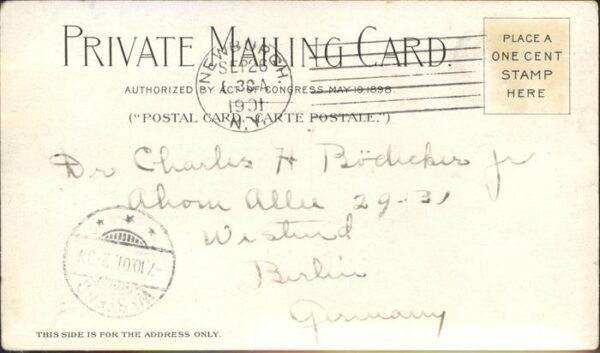 PRIVATE MAILING CARD.
AUTHORIZED BY ACT OF CONGRESS MAY 19, 1898.
("POSTAL CARD - CARTE POSTALE.")
PLACE A
ONE CENT
STAMP
HERE
NEWBURGH,
SEP 26
1901
N.Y.
Dr Charles H Bödicker Jr
Ahorn Allee 29-31
Westend
Berlin
Germany
7.10.01. 2-3N
WESTEND
THIS SIDE IS FOR THE ADDRESS ONLY.